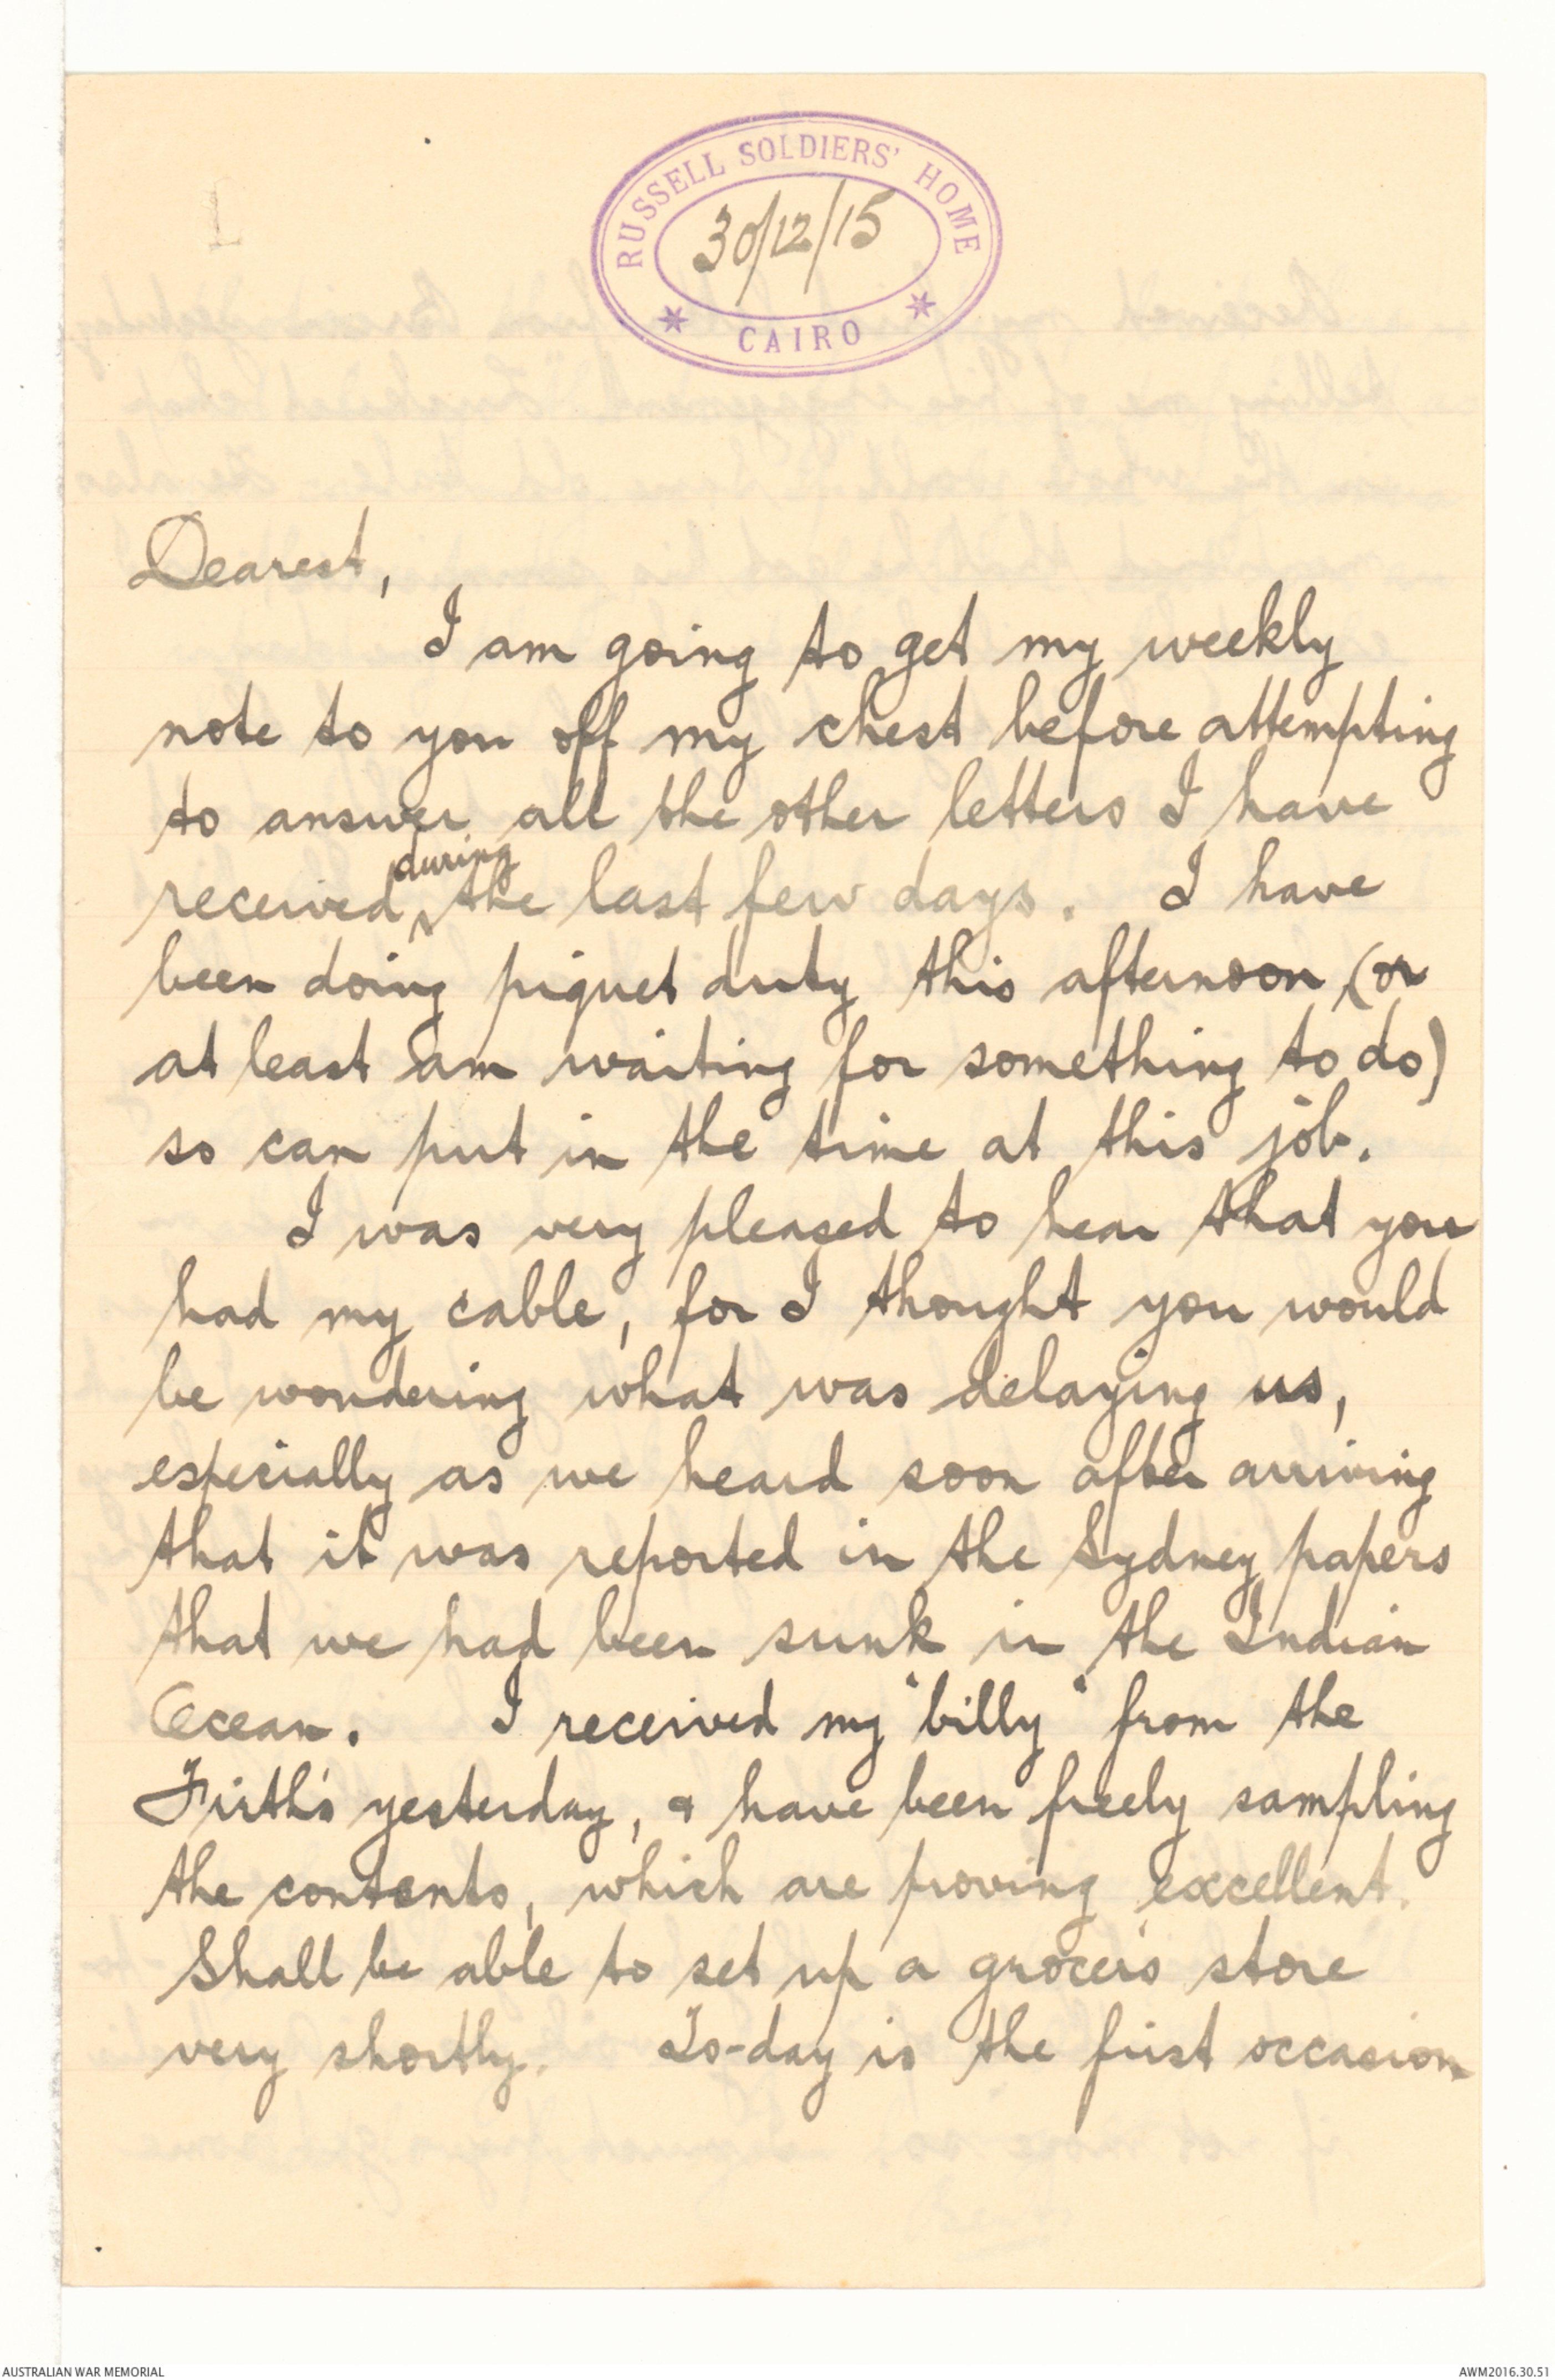 RUSSELL SOLDIERS' HOME
30/12/15
CAIRO
Dearest,
I am going to get my weekly
note to you off my chest before attempting
to answer all the other letters I have
received during the last few days. I have
been doing piquet duty this afternoon (or
at least am waiting for something to do)
so can put in the time at this job.
I was very pleased to hear that you
had my cable, for I thought you would
be wondering what was delaying us,
especially as we heard soon after arriving
that it was reported in the Sydney papers
that we had been sunk in the Indian
Ocean. I received my "billy" from the
Firth's yesterday, & have been freely sampling
the contents, which are proving excellent.
Shall be able to set up a grocer's store
very shortly. To-day is the first occasion
AUSTRALIAN WAR MEMORIAL
AWM2016.30.51